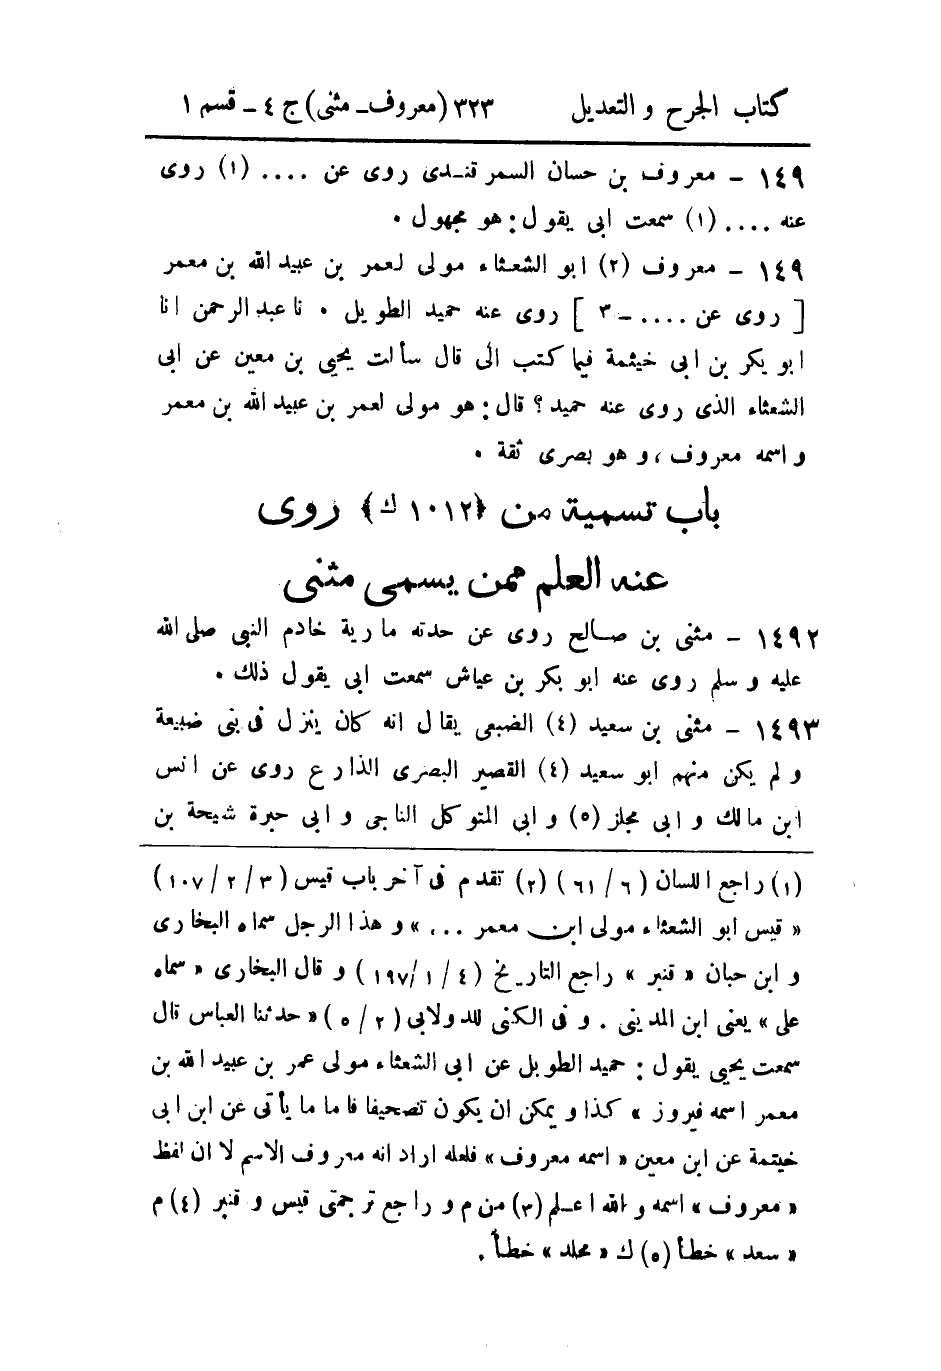 كتاب الجرح والتعديل ٣٢٣ (معروف ـ مثنى) ج ٤ ـ قسم ١
١٤٩ - معروف بن حسان السمرقندى روى عن .... (١) روى
عنه .... (١) سمعت ابى يقول: هو مجهول .
١٤٩ - معروف (٢) ابو الشعثاء مولى لعمر بن عبيد الله بن معمر
[ روى عن .... - ٣ ] روى عنه حميد الطويل . نا عبد الرحمن انا
ابو بكر بن ابى خيثمة فيما كتب الى قال سألت يحيى بن معين عن ابى
الشعثاء الذى روى عنه حميد ؟ قال: هو مولى لعمر بن عبيد الله بن معمر
و اسمه معروف ، و هو بصرى ثقة .
باب تسمية من ﴿١٠١٢ ك﴾ روى
عنه العلم ممن يسمى مثنى
١٤٩٢ - مثنى بن صالح روى عن حدته مارية خادم النبى صلى الله
عليه و سلم روى عنه ابو بكر بن عياش سمعت ابى يقول ذلك .
١٤٩٣ - مثنى بن سعيد (٤) الضبعى يقال انه كان ينزل فى بنى ضبيعة
و لم يكن منهم ابو سعيد (٤) القصير البصرى الذارع روى عن انس
ابن مالك و ابى مجلز (٥) و ابى المتوكل الناجى و ابى حبرة شيحة بن
(١) راجع اللسان ( ٦ / ٦١ ) (٢) تقدم فى آخر باب قيس ( ٣ / ٢ / ١٠٧ )
« قيس ابو الشعثاء مولى ابن معمر ... » و هذا الرجل سماه البخارى
و ابن حبان « قنبر » راجع التاريخ ( ٤ / ١ /١٩٧ ) و قال البخارى « سماه
على » يعنى ابن المدينى . و فى الكنى للدولابى ( ٢ / ٥ ) « حدثنا العباس قال
سمعت يحيى يقول : حميد الطويل عن ابى الشعثاء مولى عمر بن عبيد الله بن
معمر اسمه فيروز » كذا و يمكن ان يكون تصحيفا فاما ما يأتى عن ابن ابى
خيثمة عن ابن معين « اسمه معروف » فلعله اراد انه معروف الاسم لا ان لفظ
« معروف » اسمه و الله اعلم (٣) من م و راجع ترجمتى قيس و قنبر (٤) م
« سعد » خطأ (٥) ك « مخلد » خطأ .